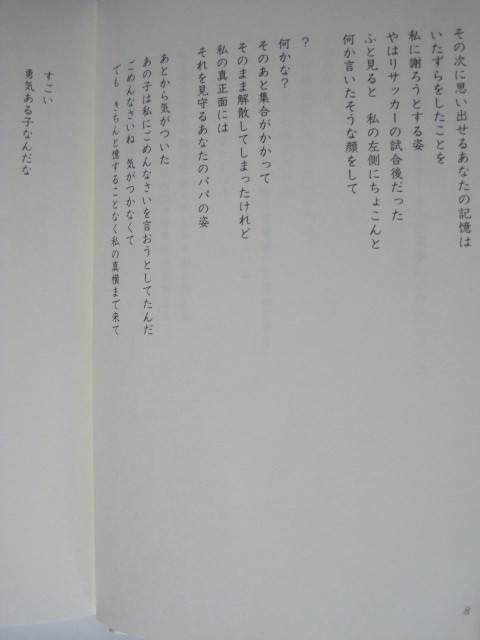 その次に思い出せるあなたの記憶は
いたずらをしたことを
私に謝ろうとする姿
やはりサッカーの試合後だった
ふと見ると　私の左側にちょこんと
何か言いたそうな顔をして
？
何かな？
そのあと集合がかかって
そのまま解散してしまったけれど
私の真正面には
それを見守るあなたのパパの姿
あとから気がついた
あの子は私にごめんなさいを言おうとしてたんだ
ごめんなさいね　気がつかなくて
でも　きちんと憶することなく私の真横まで来て
すごい
勇気ある子なんだな
8